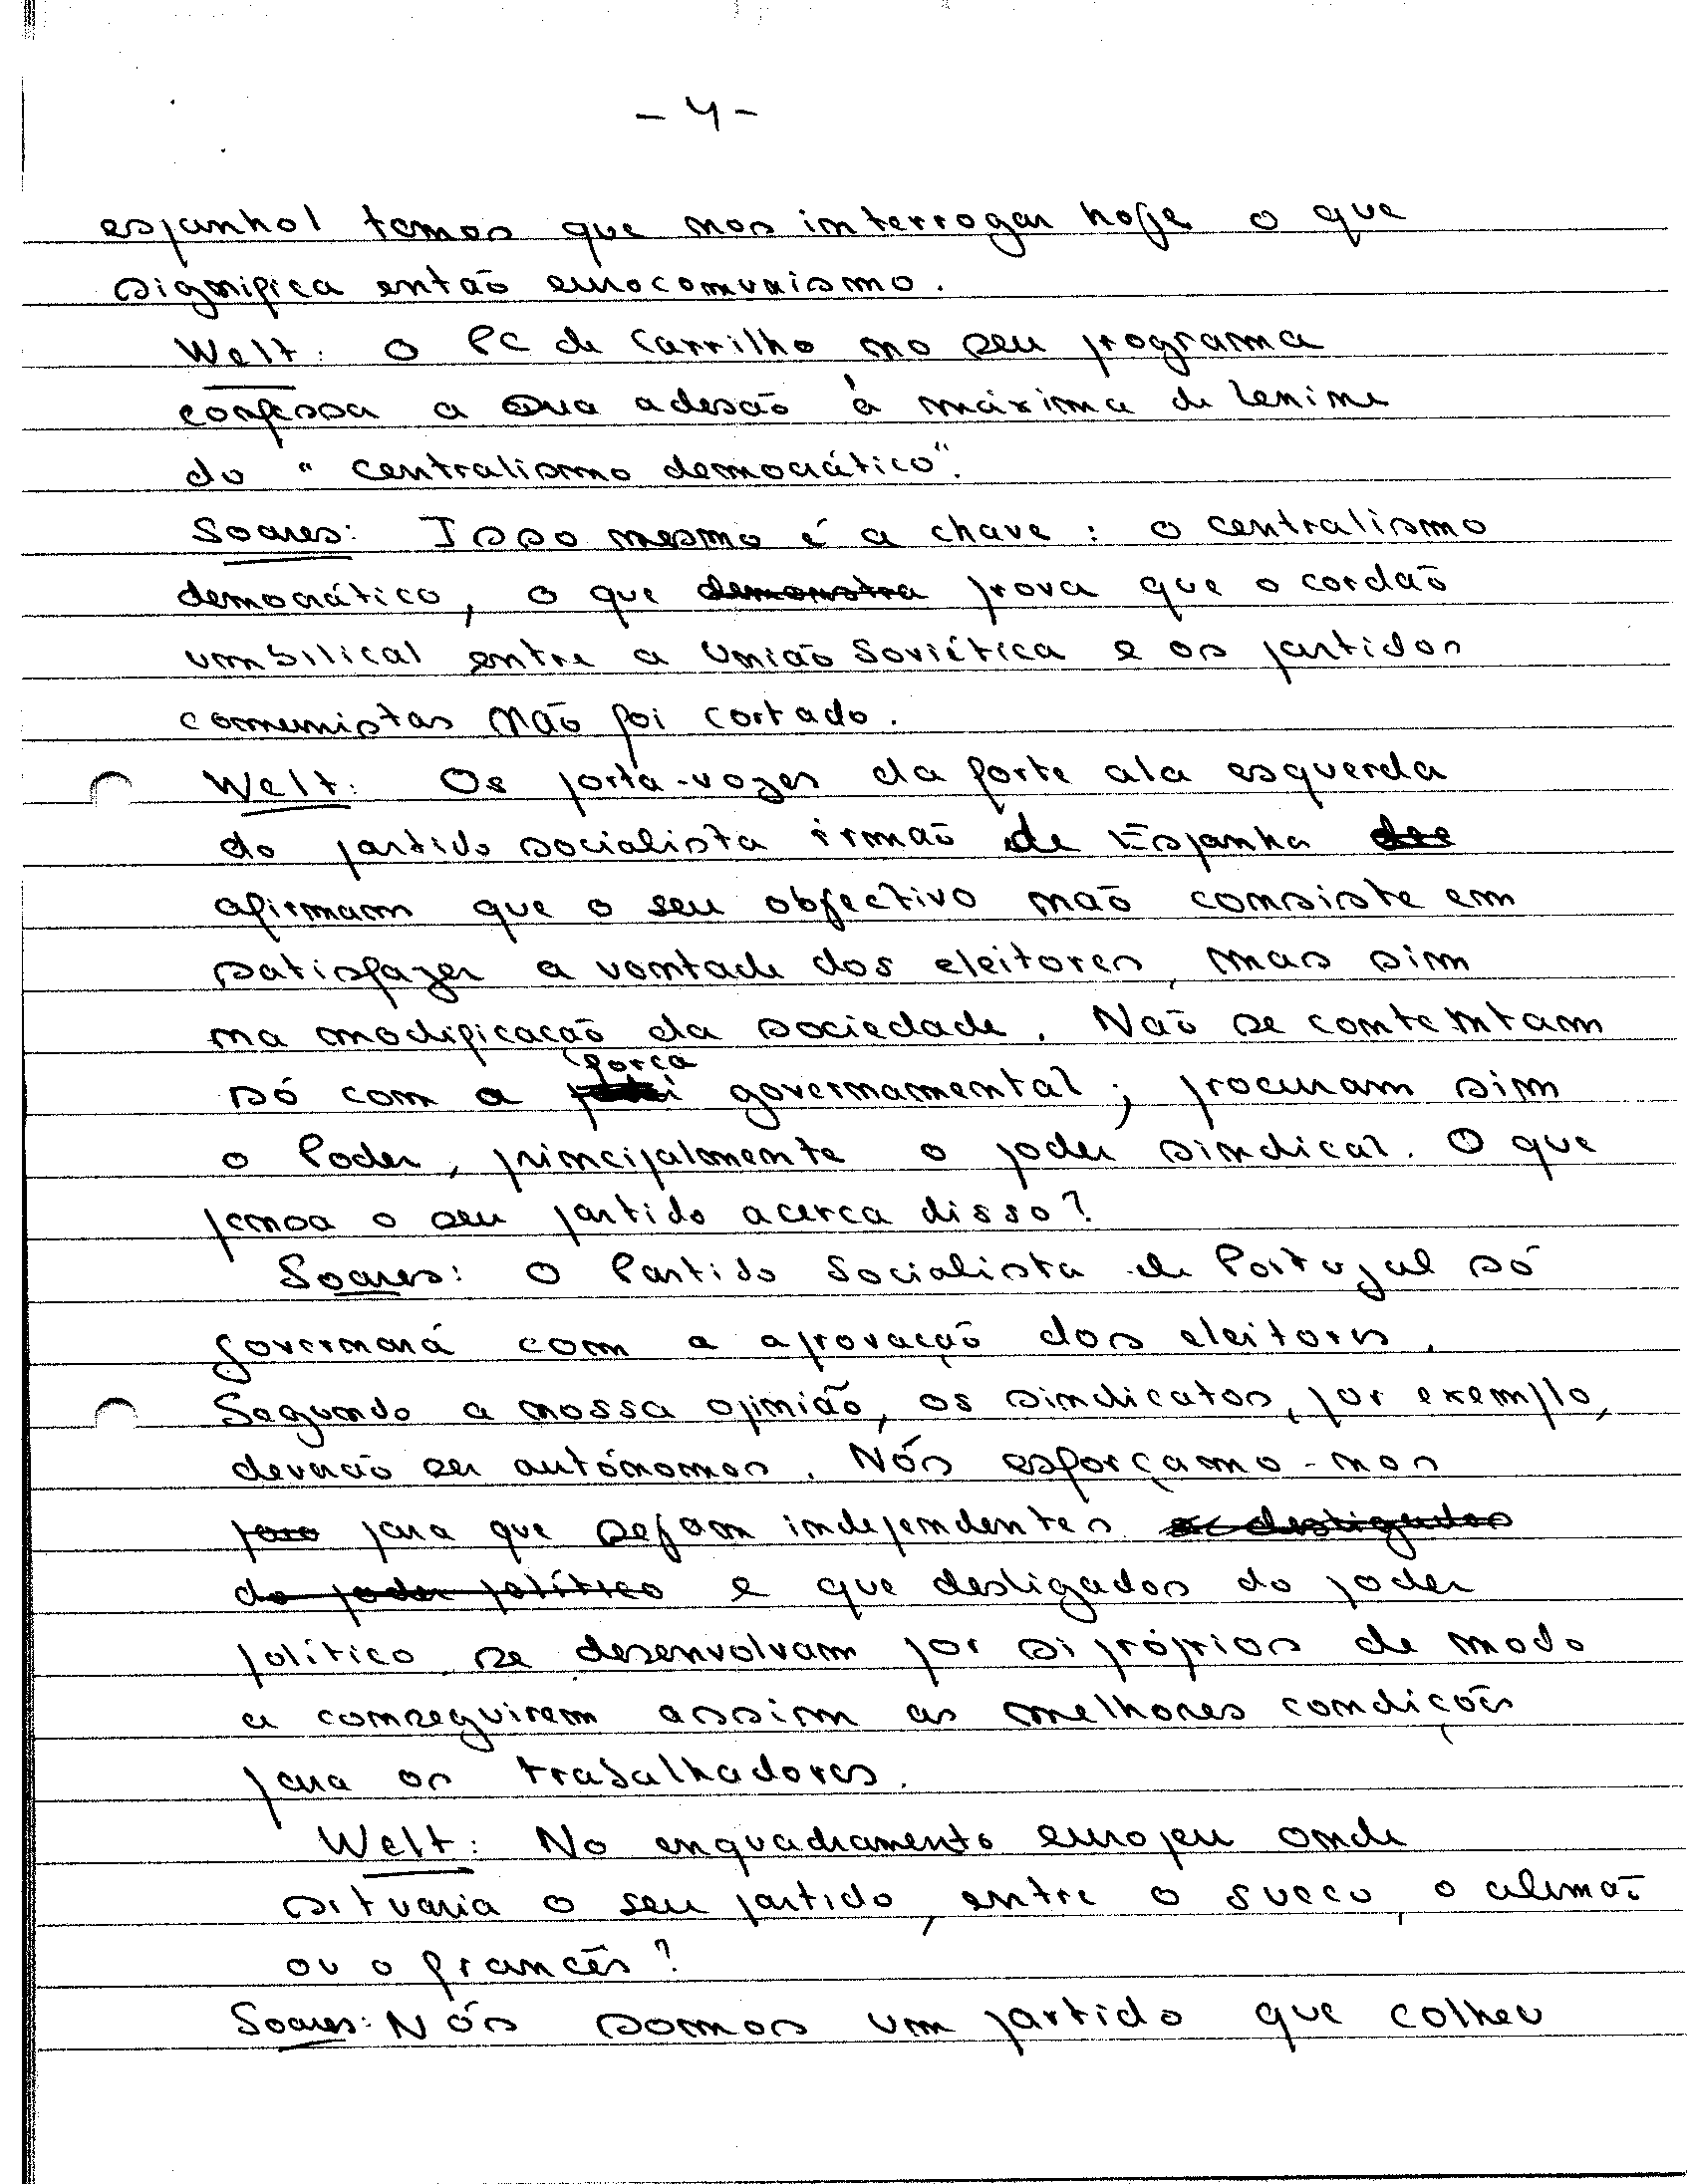 - 4 -
espanhol temos que nos interrogar hoje o que
significa então eurocomunismo.
Welt: O PC de Carrilho no seu programa
confessa a sua adesão à máxima de Lenine
do "centralismo democrático".
Soares: Isso mesmo é a chave: o centralismo
democrático, o que demonstra prova que o cordão
umbilical entre a União Soviética e os partidos
comunistas não foi cortado.
Welt: Os porta-vozes da forte ala esquerda
do partido socialista irmão de Espanha
afirmam que o seu objectivo não consiste em
satisfazer a vontade dos eleitores, mas sim
na modificação da sociedade. Não se contentam
só com a força governamental; procuram sim
o Poder, principalmente o poder sindical. O que
pensa o seu partido acerca disso?
Soares: O Partido Socialista de Portugal só
governará com a aprovação dos eleitores.
Segundo a nossa opinião, os sindicatos, por exemplo,
deverão ser autónomos. Nós esforçamo-nos
para para que sejam independentes e desligados
do poder político e que desligados do poder
político se desenvolvam por si próprios de modo
a conseguirem assim as melhores condições
para os trabalhadores.
Welt: No enquadramento europeu onde
situaria o seu partido, entre o sueco, o alemão
ou o francês?
Soares: Nós somos um partido que colheu